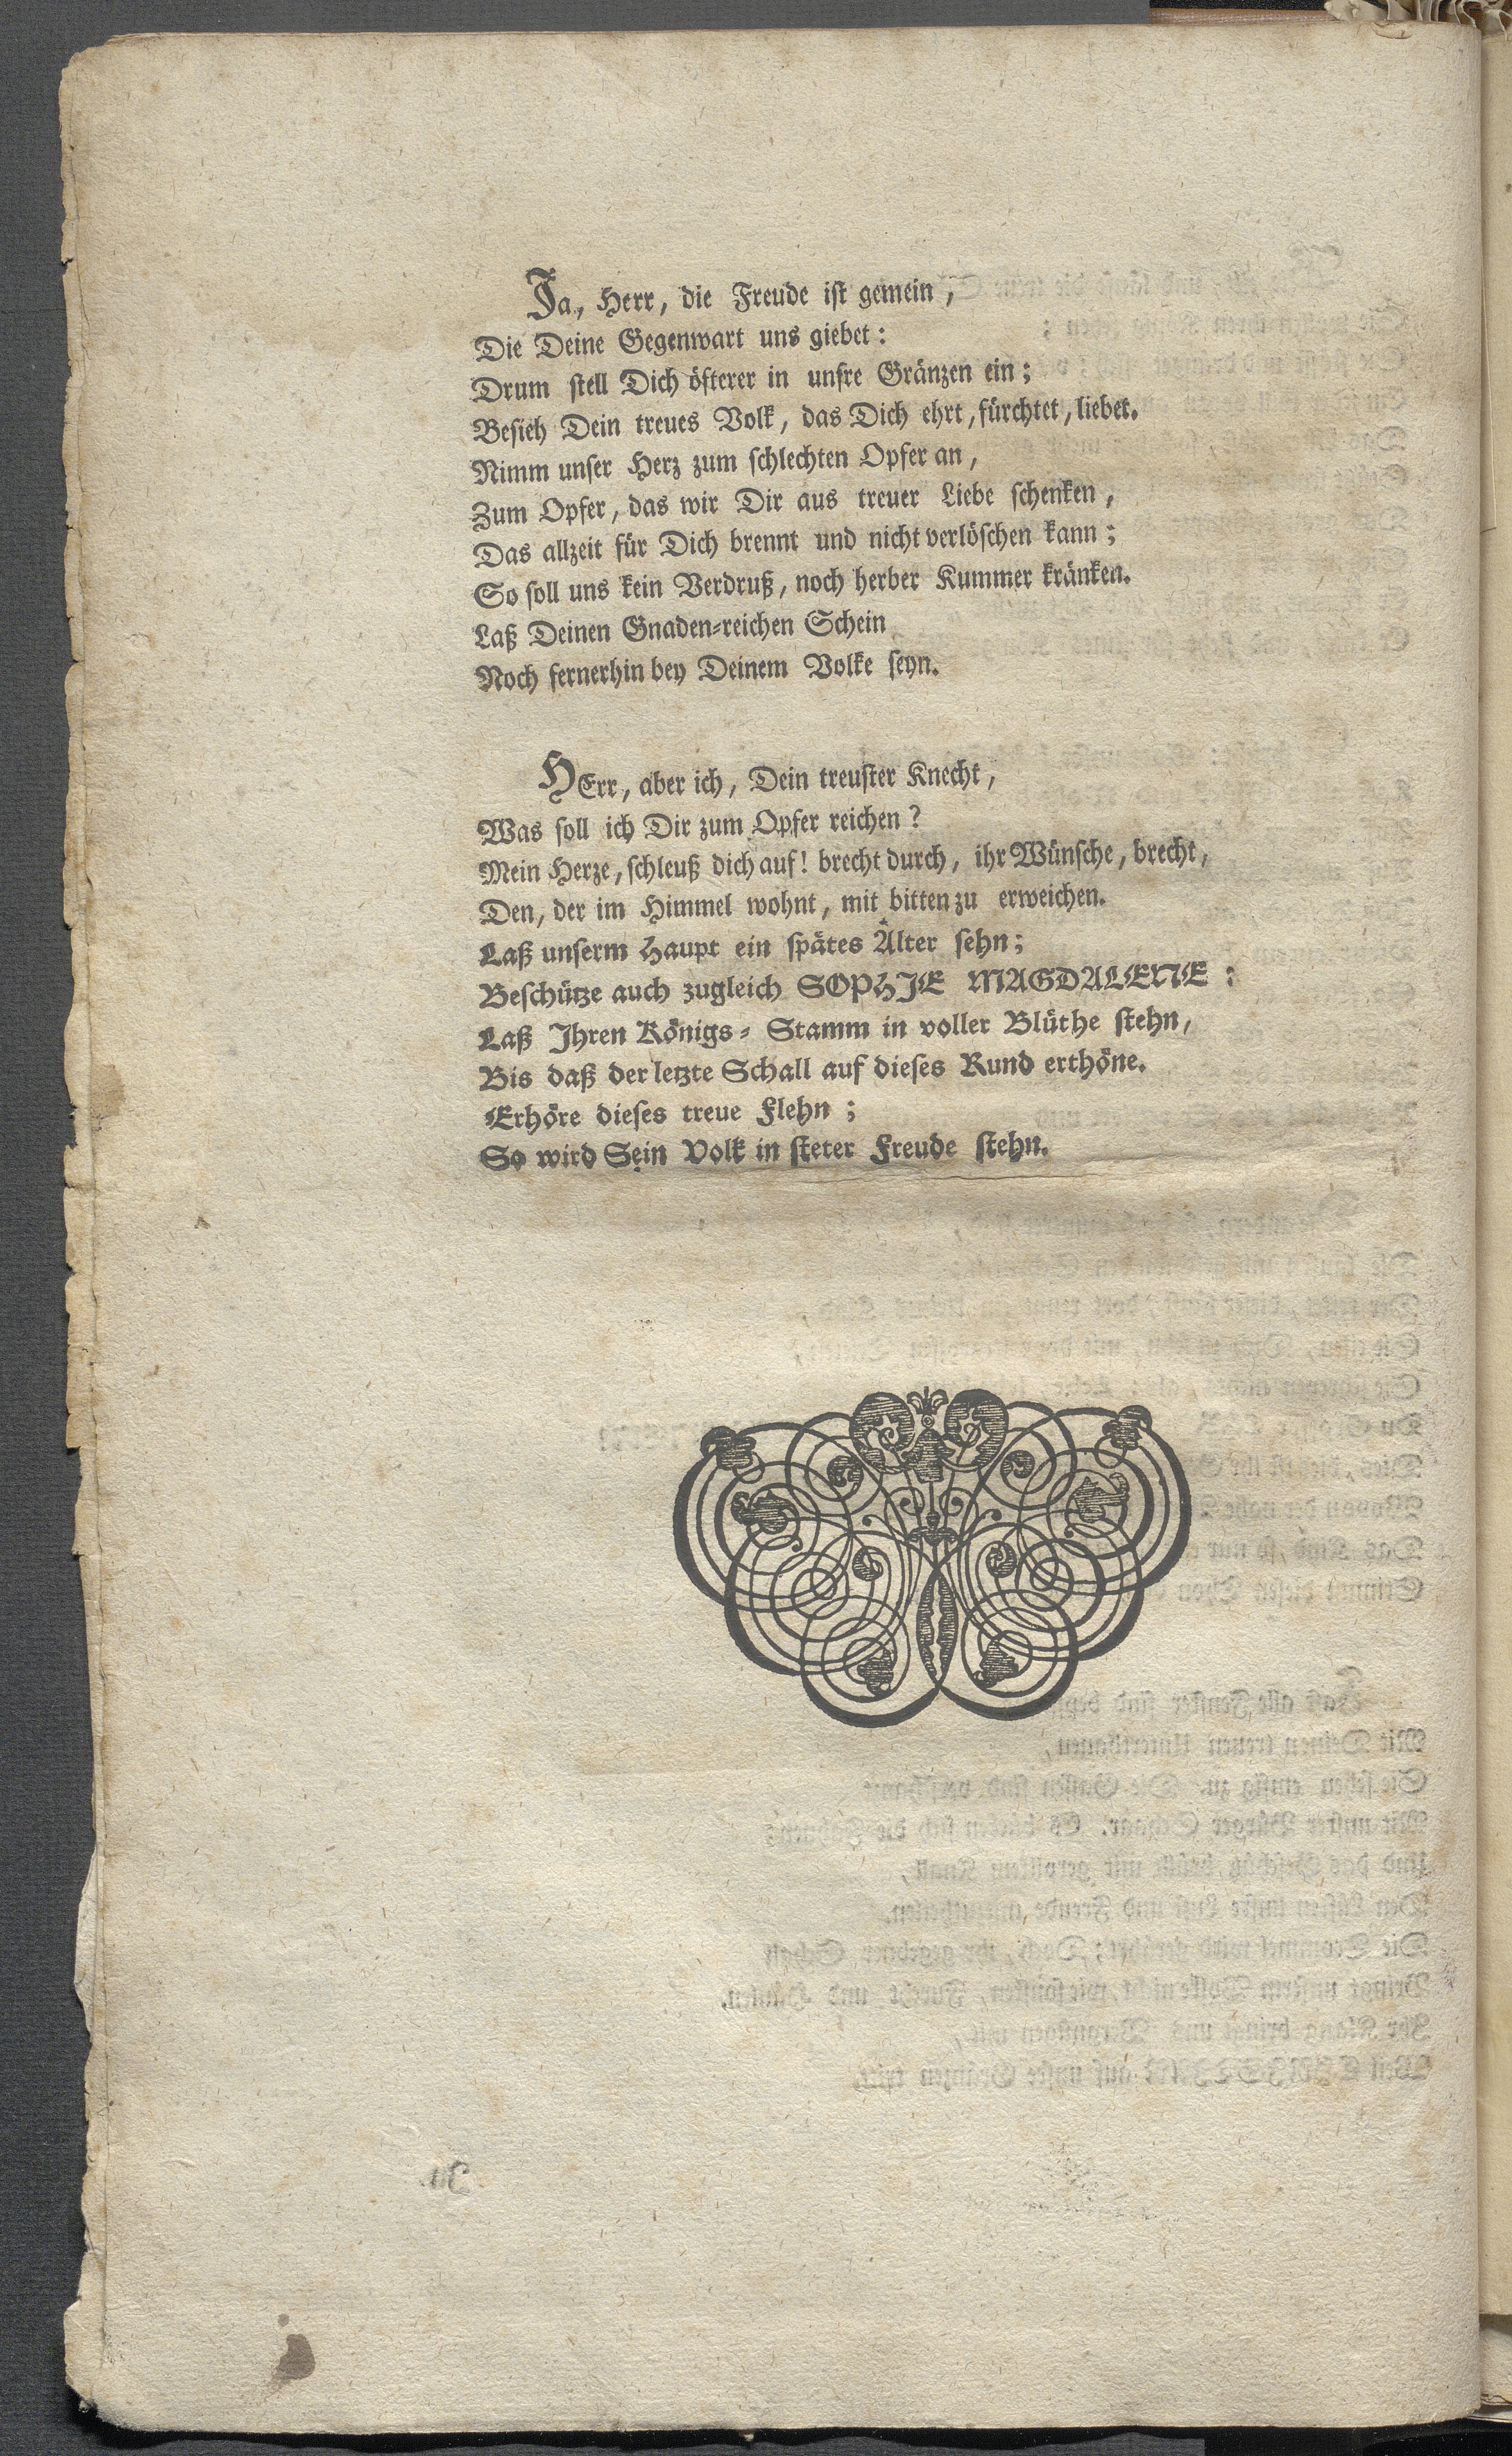 Ja, Herr, die Freude ist gemein,
Die Deine Gegenwart uns giebet:
Drum stell Dich öfterer in unsre Gränzen ein;
Besieh Dein treues Volk, das Dich ehrt, fürchtet, liebet.
Nimm unser Herz zum schlechten Opfer an,
Zum Opfer, das wir Dir aus treuer Liebe schenken,
Das allzeit für Dich brennt und nicht verlöschen kann;
So soll uns kein Verdruß, noch herber Kummer kränken.
Laß Deinen Gnaden-reichen Schein
Noch fernerhin bey Deinem Volke seyn.
HErr, aber ich, Dein treuster Knecht,
Was soll ich Dir zum Opfer reichen?
Mein Herze, schleuß dich auf! brecht durch, ihr Wünsche, brecht,
Den, der im Himmel wohnt, mit bitten zu erweichen.
Laß unserm Haupt ein spätes Alter sehn;
Beschütze auch zugleich SOPHIE MAGDALENE:
Laß Ihren Königs-Stamm in voller Blüthe stehn,
Bis daß der letzte Schall auf dieses Rund erthöne.
Erhöre dieses treue Flehn;
So wird Sein Volk in steter Freude stehn.